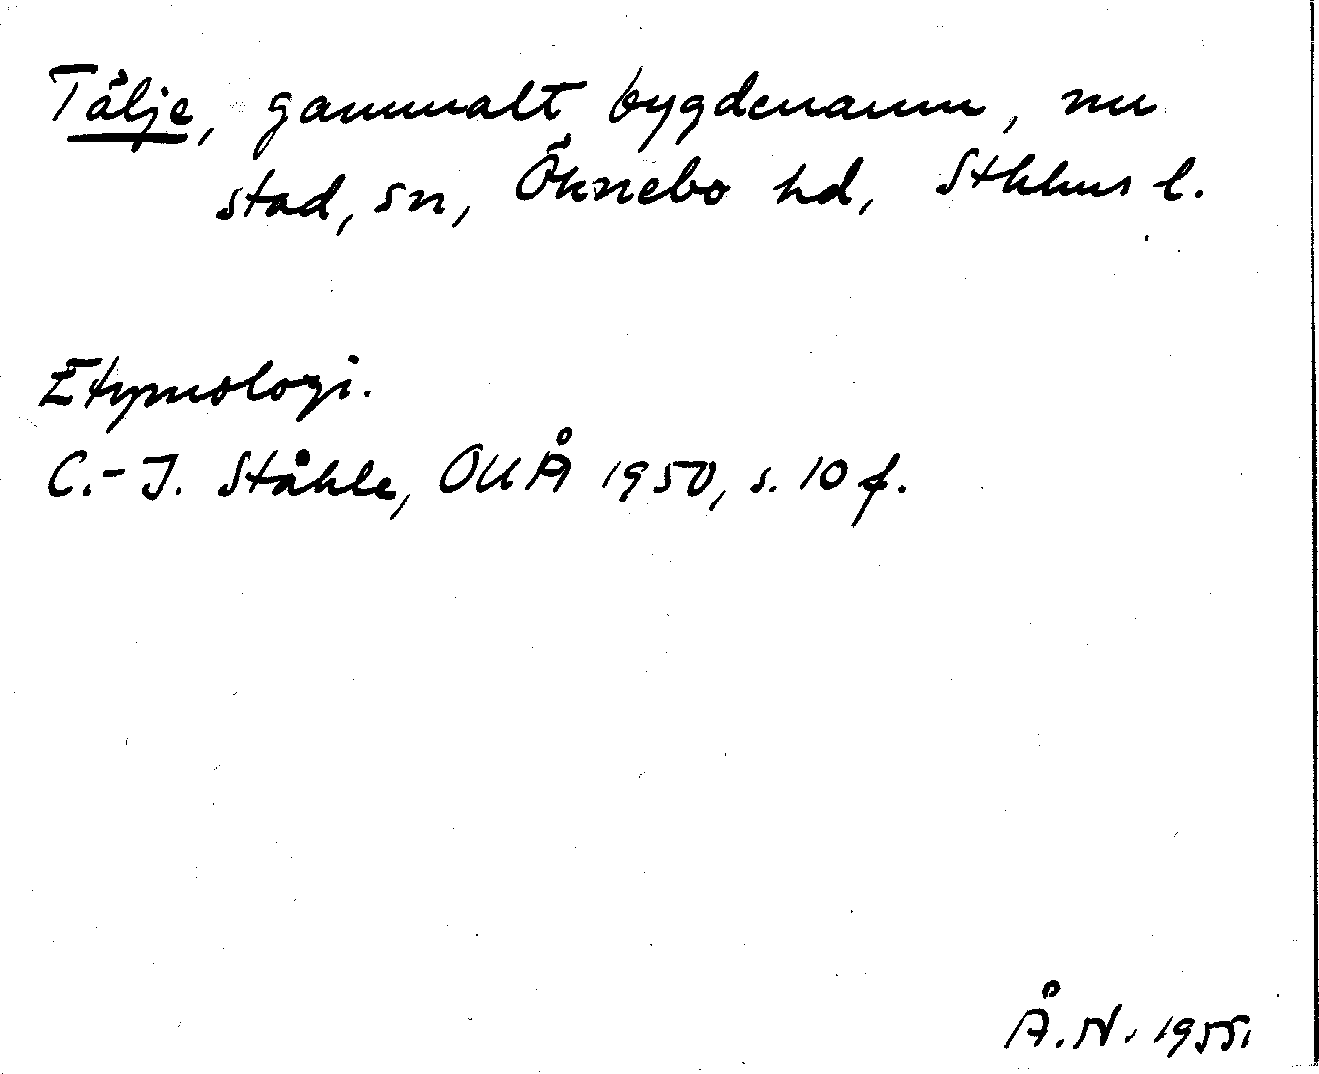 Tälje, gammalt bygdenamn, nu
stad, sn, Öknebo hd, Sthlms l.
Etymologi.
C.-I. Ståhle, OUÅ 1950, s. 10 f.
Å. N. 1955.